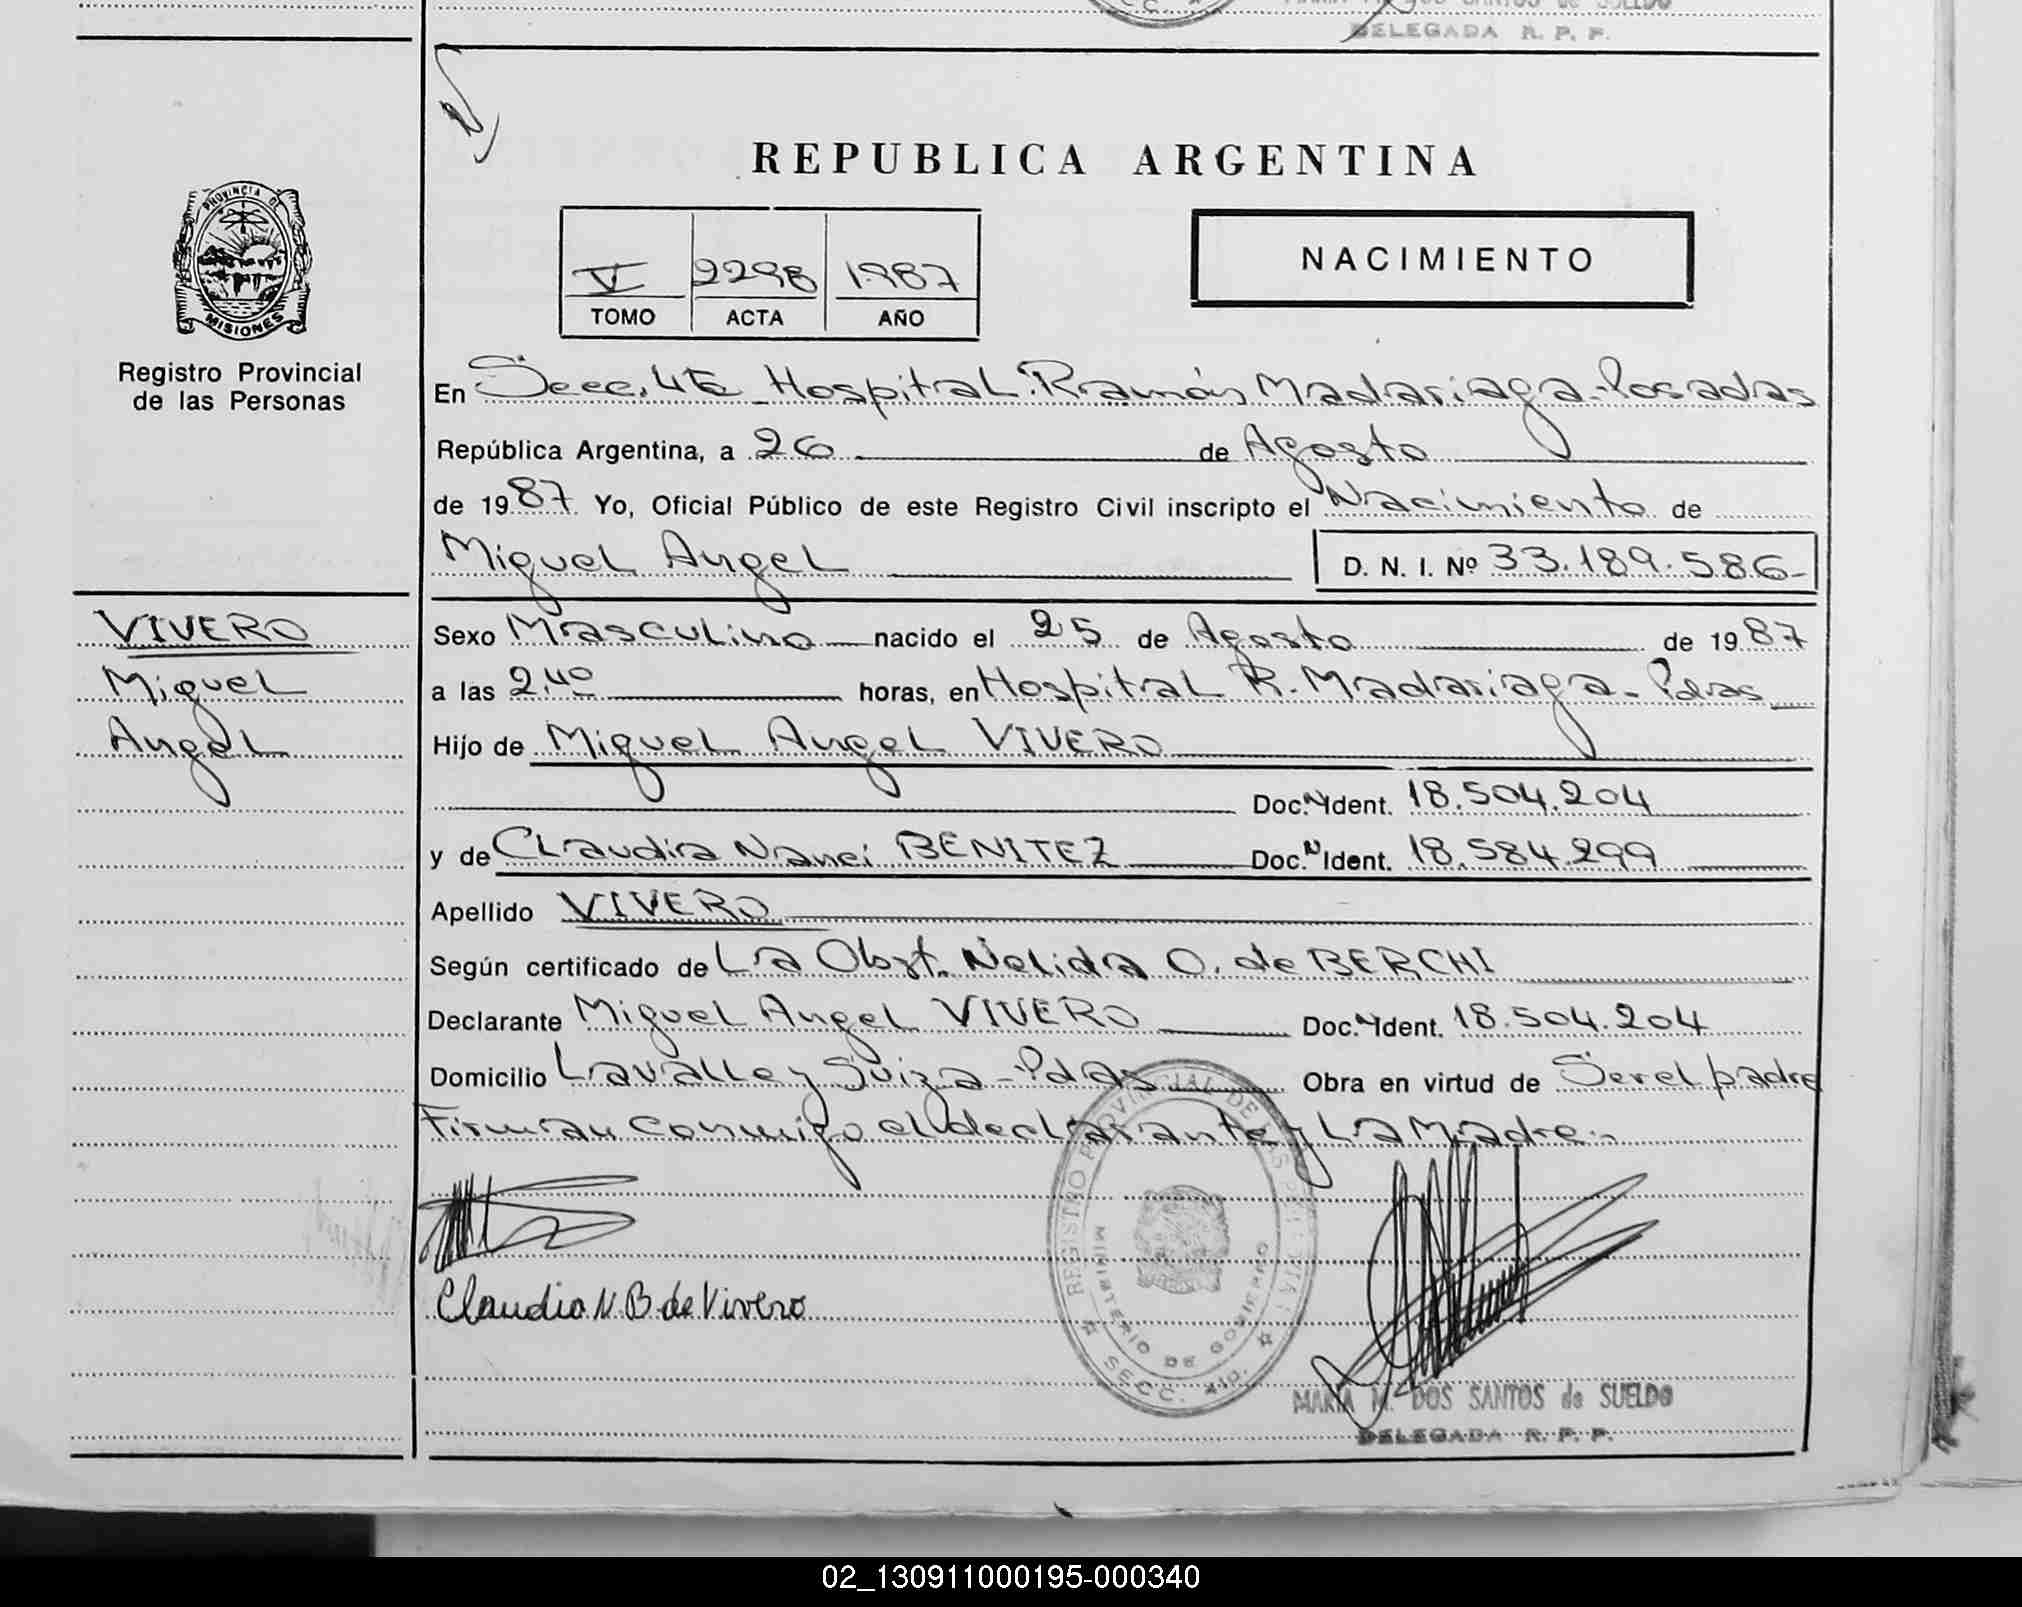 DELEGADA R. P. P.
REPUBLICA ARGENTINA
PROVINCIA DE
MISIONES
V 2298 1987
TOMO ACTA AÑO
NACIMIENTO
Registro Provincial
de las Personas
En Secc. 4ta Hospital Ramón Madariaga - Posadas
República Argentina, a 26 de Agosto
de 1987 Yo, Oficial Público de este Registro Civil inscripto el Nacimiento de
Miguel Angel D. N. I. Nº 33.189.586
VIVERO
Miguel
Angel
Sexo Masculino nacido el 25 de Agosto de 1987
a las 2,40 horas, en Hospital R. Madariaga - Pdas
Hijo de Miguel Angel VIVERO
Doc. Ident. 18.504.204
y de Claudia Nanci BENITEZ Doc. Ident. 18.584.299
Apellido VIVERO
Según certificado de La Obst. Nelida O. de BERCHI
Declarante Miguel Angel VIVERO Doc. Ident. 18.504.204
Domicilio Lavalle y Suiza - Pdas Obra en virtud de Ser el padre
Firman conmigo el declarante y La Madre
Claudia N. B. de Vivero
REGISTRO PROVINCIAL DE LAS PERSONAS
MINISTERIO DE GOBIERNO
SECC. 4ta.
MARIA M. DOS SANTOS de SUELDO
DELEGADA R. P. P.
02_130911000195-000340